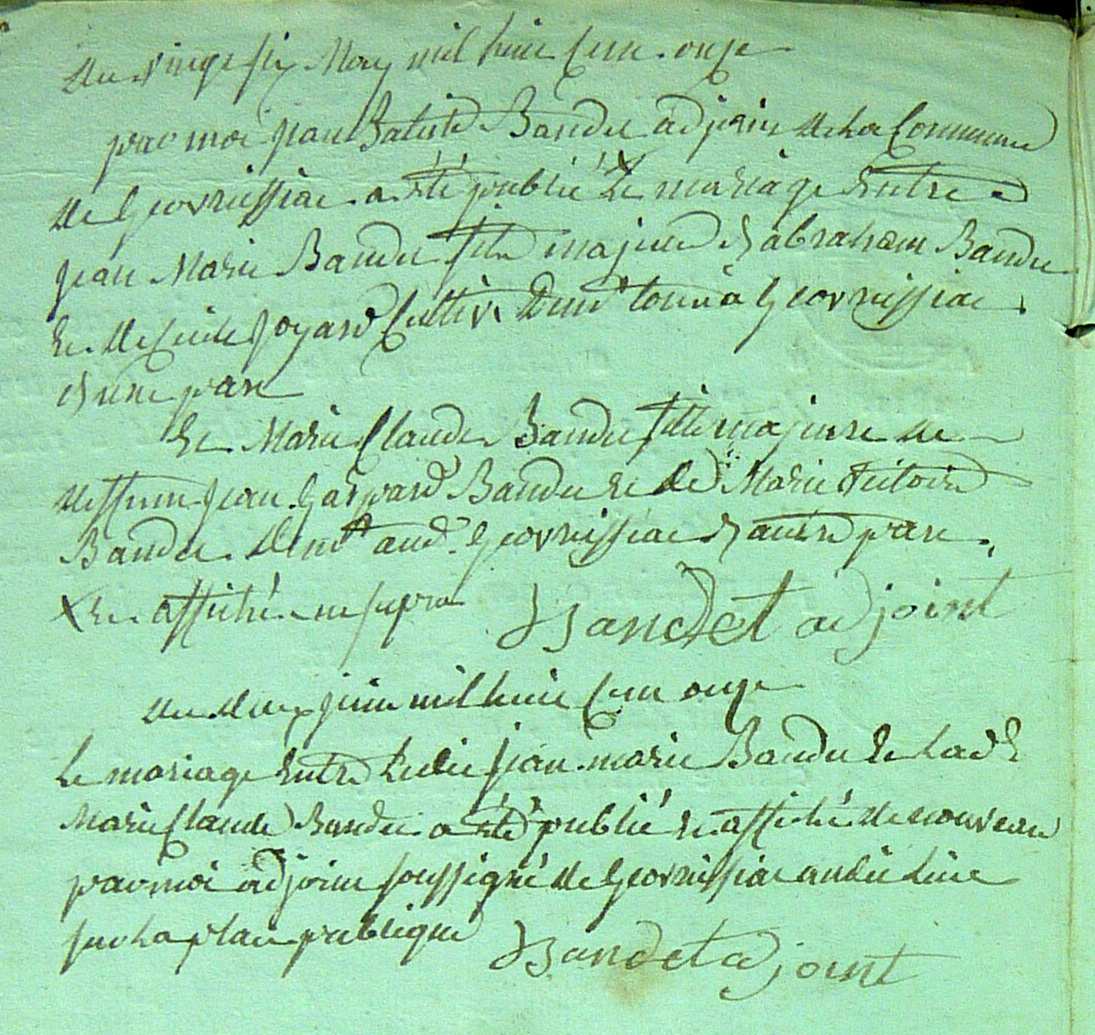 du vingt six May mil huit cent onze
par moi jean Batiste Bandet adjoint de La Commune
de Geovreissiat a été publié Le mariage Entre
jean Marie Bandet fils majeur d'abraham Bandet
Et de Goyard Cultiv. Demt tout à Geovreissiat
d'une part
Et Marie Claude Bandet fille majeure de
deffunt jean Gaspard Bandet Et de Marie Victoire
Bandet Demt aud. Geovreissiat d'autre part.
X Et affiché ut supra Bandet adjoint
du deux juin mil huit cent onze
Le mariage Entre Ledit jean marie Bandet Et Lade
Marie Claude Bandet a été publié Et affiché de nouveau
par moi adjoint soussigné de Geovreissiat audit lieu
sur La place publique Bandet adjoint